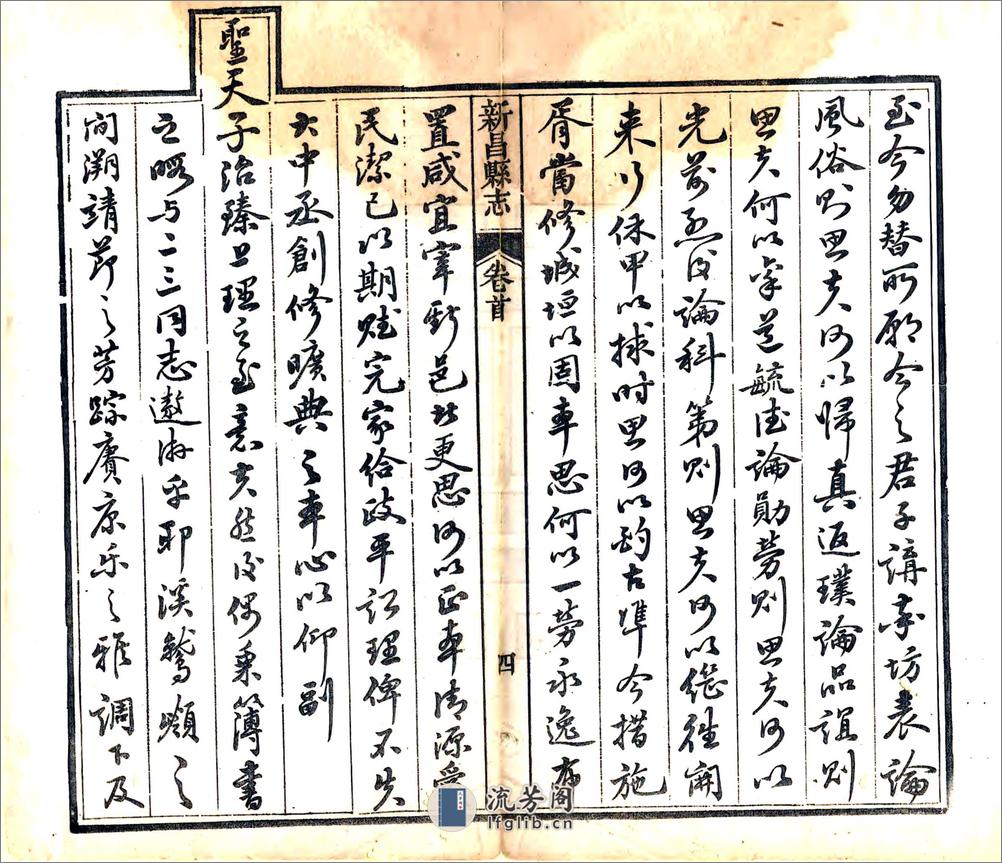 至今勿替所願今之君子講求坊表論
風俗則思夫何以歸真返璞論品誼則
思夫何以率道毓德論勛勞則思夫何以
光前烈後論科第則思夫何以繼往開
來行保甲以救時思何以酌古準今措施
胥當修城垣以固車思何以一勞永逸
新昌縣志 卷首 四
置咸宜宰斯邑此更思何以正本清源愛
民潔己以期賦完家給政平訟理俾不失
大中丞創修曠典之本心以仰副
聖天子治臻上理之至意夫然後偶乘簿書
之暇与二三同志遨游乎耶溪之
間溯靖節之芳踪賡康樂之雅調下及
流芳阁
lfglib.cn